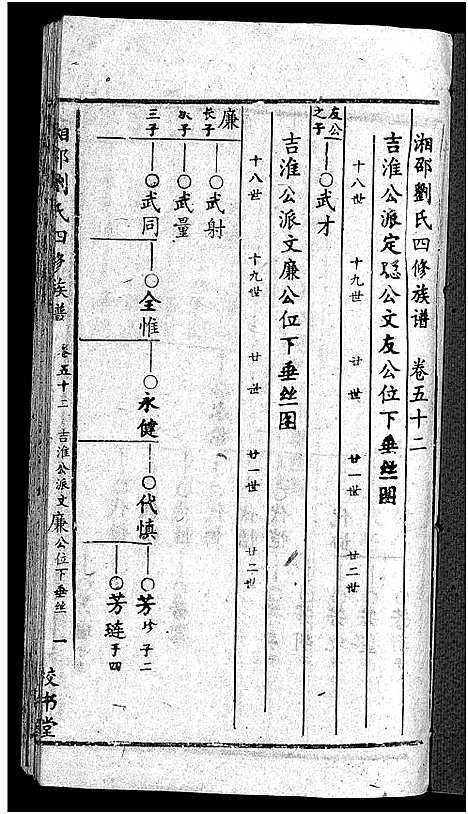 湘邵劉氏四修族谱 卷五十二
吉淮公派定聪公文友公位下垂丝图
十八世 十九世 廿世 廿一世 廿二世
友公之子 武才
吉淮公派文廉公位下垂丝图
十八世 十九世 廿世 廿一世 廿二世
廉长子 武射
次子 武量
三子 武同 全惟 永健 代慎 芳珍 子二
芳琏 子四
湘邵劉氏四修族普 卷五十二 吉淮公派文廉公位下垂丝 一
校书堂